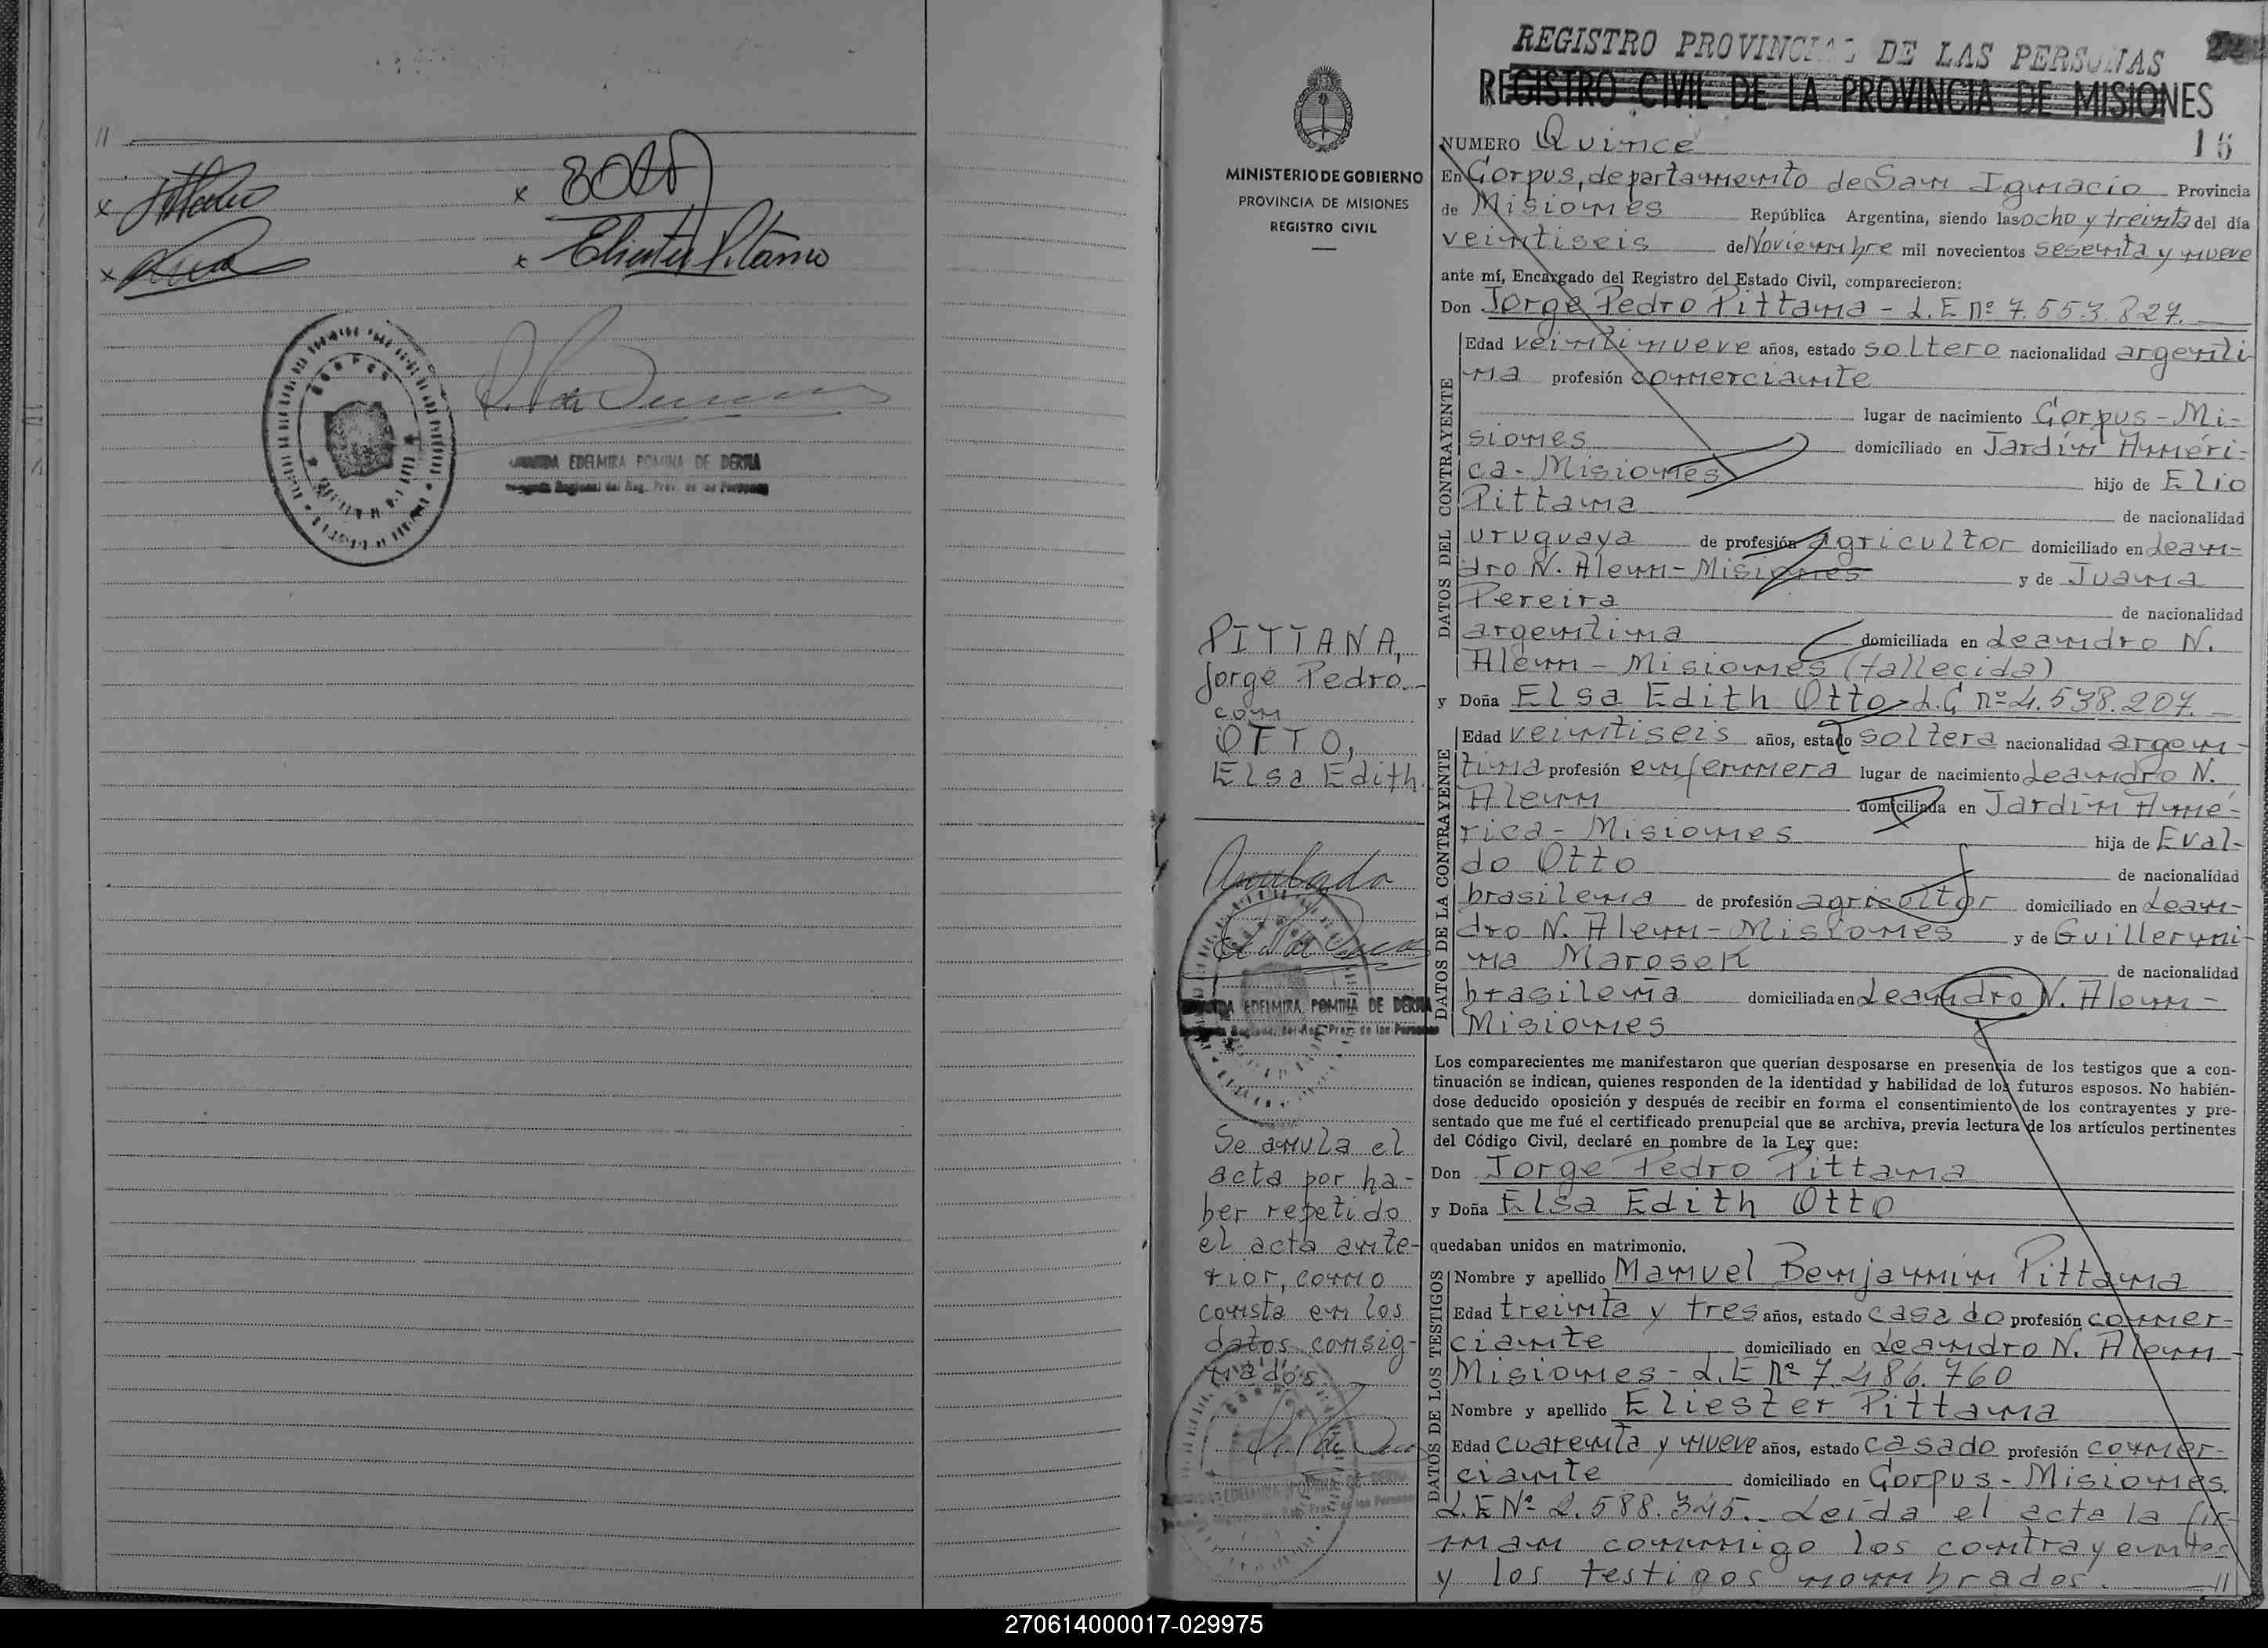 //
x
x
x
x Eliester Pittana
EDELMIRA POMINA DE DERNA
Regional del Reg. Prov. de las Personas
MINISTERIO DE GOBIERNO
PROVINCIA DE MISIONES
REGISTRO CIVIL
PITTANA,
Jorge Pedro.-
con
OTTO,
Elsa Edith
Anulado
EDELMIRA POMINA DE DERNA
Regional del Reg. Prov. de las Personas
Se anula el
acta por ha-
ber repetido
el acta ante-
rior, como
consta en los
datos consig-
nados.
EDELMIRA POMINA DE DERNA
Reg. Prov. de las Personas
REGISTRO PROVINCIAL DE LAS PERSONAS
REGISTRO CIVIL DE LA PROVINCIA DE MISIONES
15
NUMERO Quince
En Corpus, departamento de San Ignacio Provincia
de Misiones República Argentina, siendo las ocho y treinta del día
veintiseis de Noviembre mil novecientos sesenta y nueve
ante mí, Encargado del Registro del Estado Civil, comparecieron:
Don Jorge Pedro Pittana - L.E nº 7.553.827.
DATOS DEL CONTRAYENTE
Edad veintinueve años, estado soltero nacionalidad argenti
na profesión comerciante
lugar de nacimiento Corpus - Mi-
siones domiciliado en Jardín Améri-
ca - Misiones hijo de Elio
Pittana de nacionalidad
uruguaya de profesión agricultor domiciliado en Lean-
dro N. Alem - Misiones y de Juana
Pereira de nacionalidad
argentina domiciliada en Leandro N.
Alem - Misiones (fallecida)
y Doña Elsa Edith Otto - L.C nº 4.538.207.
DATOS DE LA CONTRAYENTE
Edad veintiseis años, estado soltera nacionalidad argen-
tina profesión enfermera lugar de nacimiento Leandro N.
Alem domiciliada en Jardín Amé-
rica - Misiones hija de Eval-
do Otto de nacionalidad
brasilena de profesión agricultor domiciliado en Lean-
dro N. Alem - Misiones y de Guillermi-
na Marosek de nacionalidad
brasileña domiciliada en Leandro N. Alem -
Misiones
Los comparecientes me manifestaron que querían desposarse en presencia de los testigos que a con-
tinuación se indican, quienes responden de la identidad y habilidad de los futuros esposos. No habién-
dose deducido oposición y después de recibir en forma el consentimiento de los contrayentes y pre-
sentado que me fué el certificado prenupcial que se archiva, previa lectura de los artículos pertinentes
del Código Civil, declaré en nombre de la Ley que:
Don Jorge Pedro Pittana
y Doña Elsa Edith Otto
quedaban unidos en matrimonio.
DATOS DE LOS TESTIGOS
Nombre y apellido Manuel Benjamin Pittana
Edad treinta y tres años, estado casado profesión comer-
ciante domiciliado en Leandro N. Alem -
Misiones - L.E Nº 7.486.760
Nombre y apellido Eliester Pittana
Edad cuarenta y nueve años, estado casado profesión comer-
ciante domiciliado en Corpus - Misiones.
L.E Nº 2.588.345.- Leída el acta la fir-
man conmigo los contrayentes
y los testigos nombrados. //
270614000017-029975